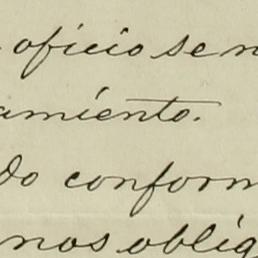 oficio se n
amiento.
do conform
nos oblig